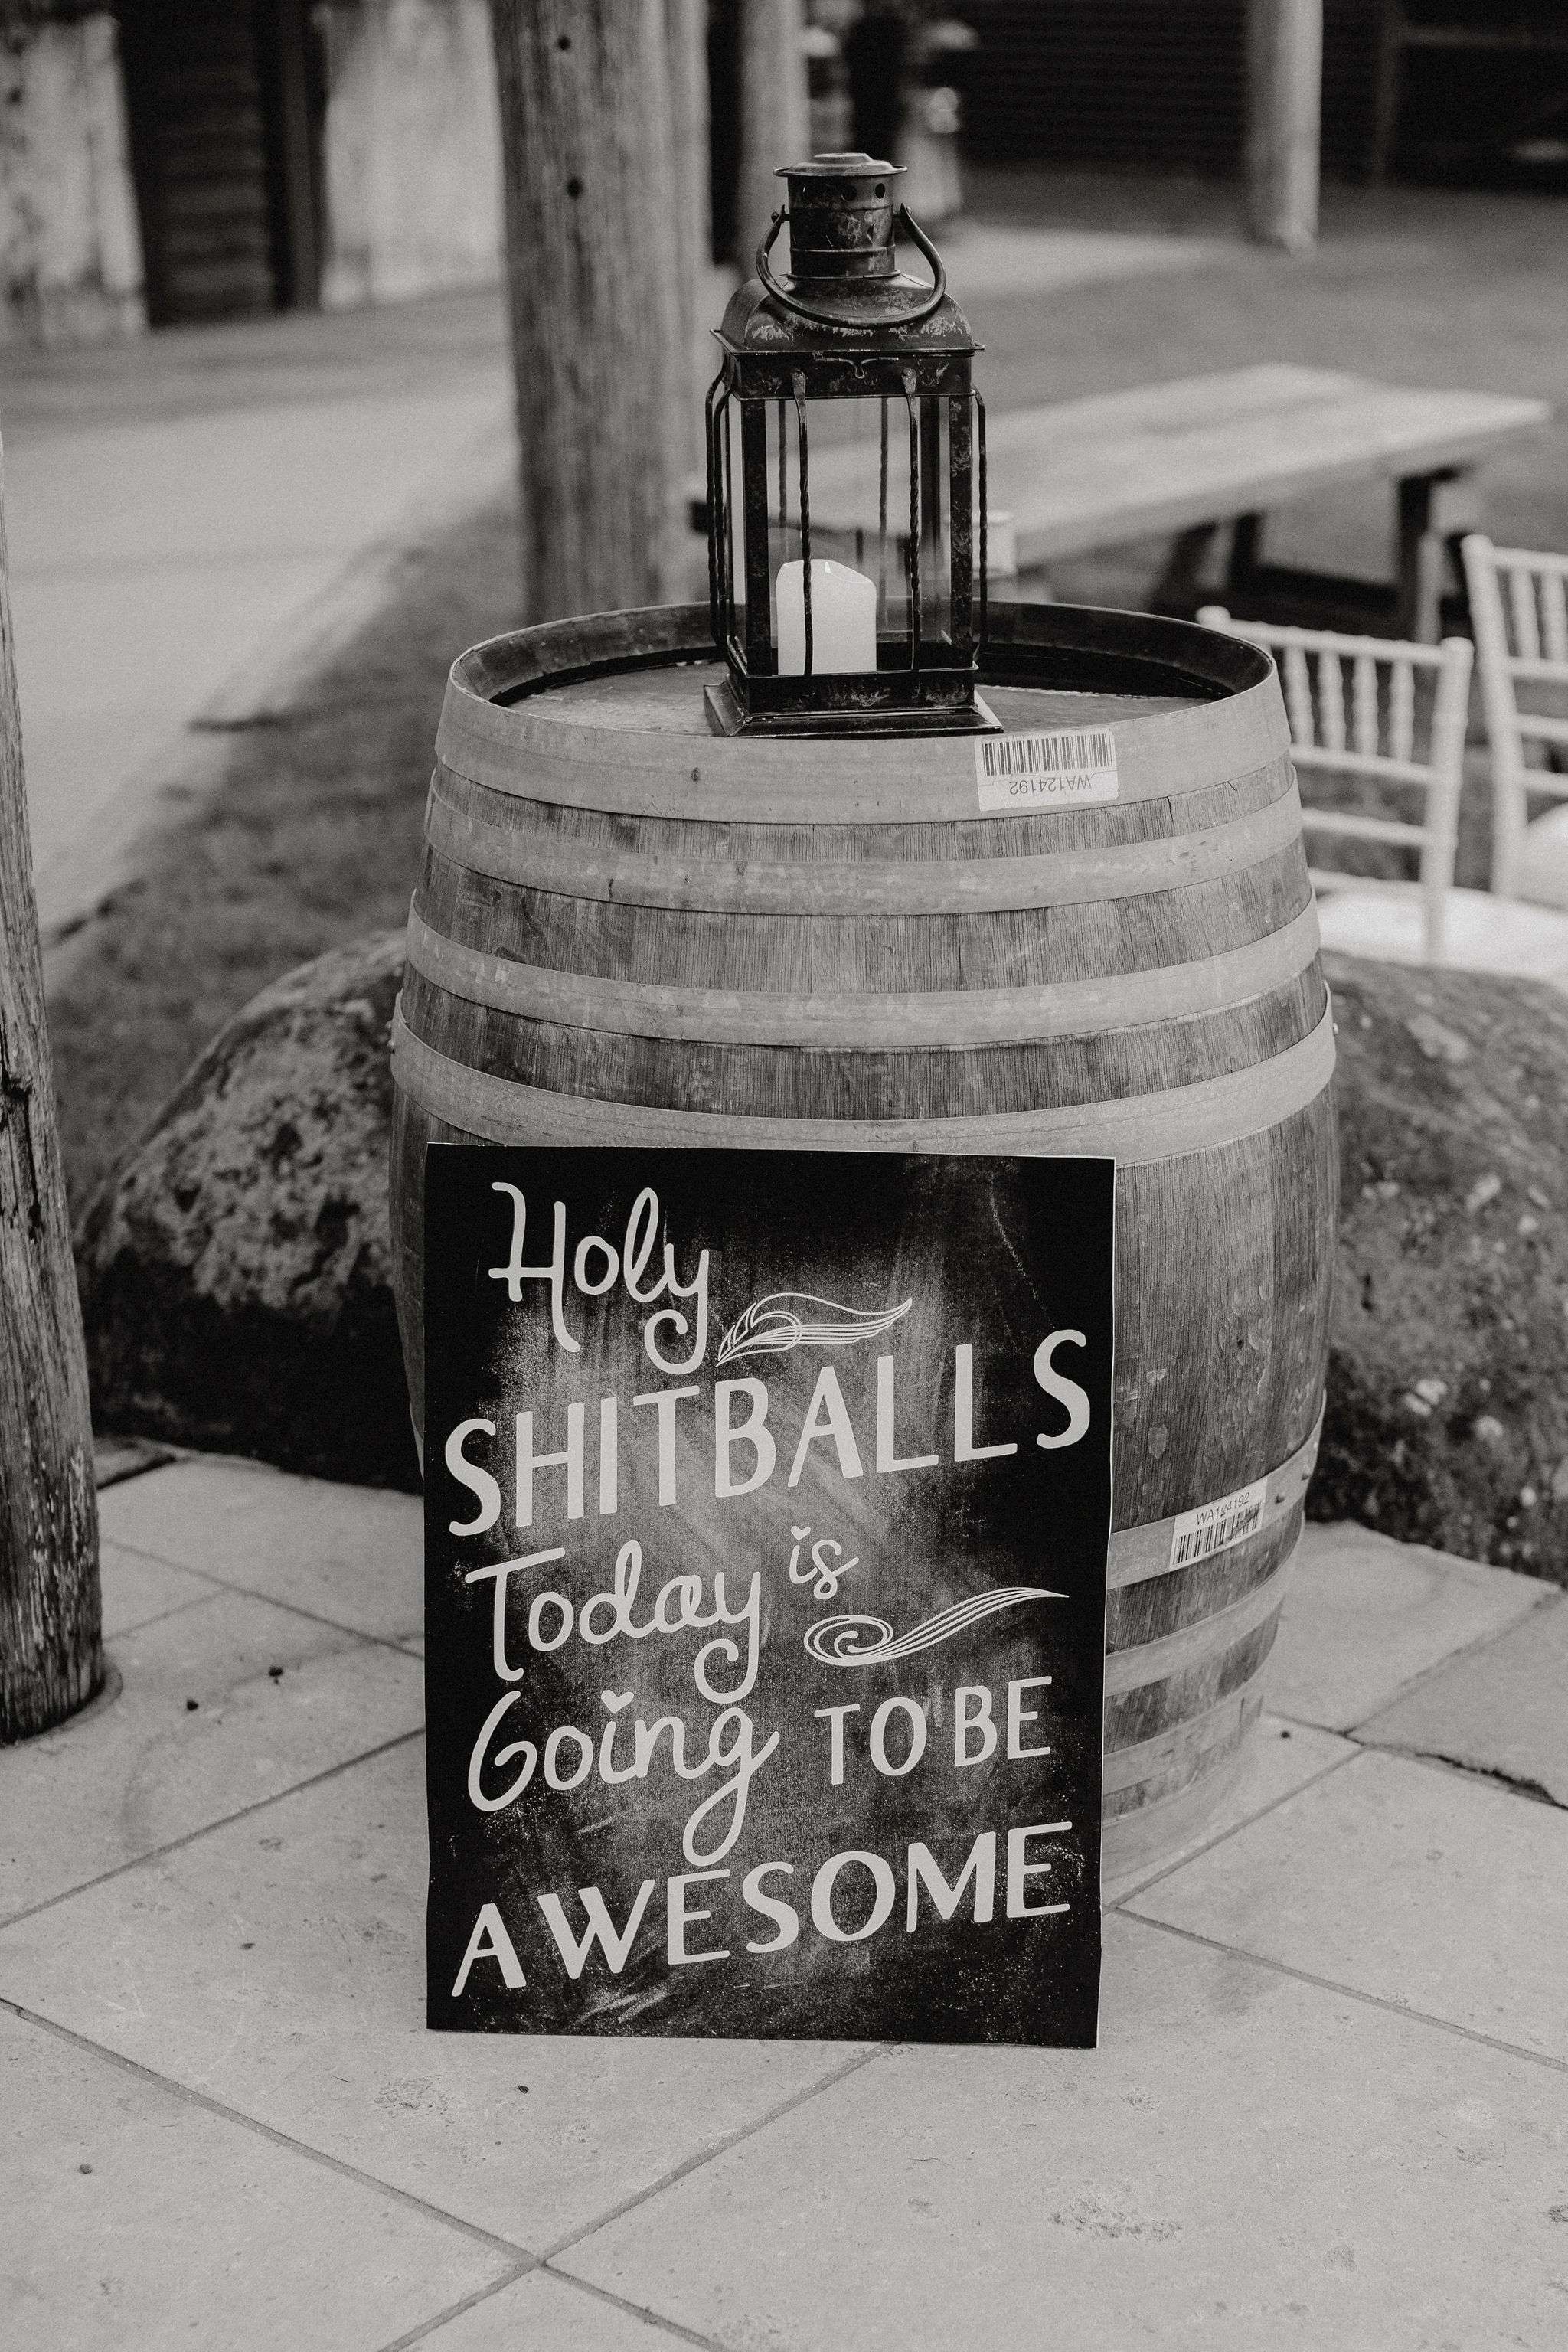 WA124192
Holy
SHITBALLS
Today is
Going TO BE
AWESOME
WA124192